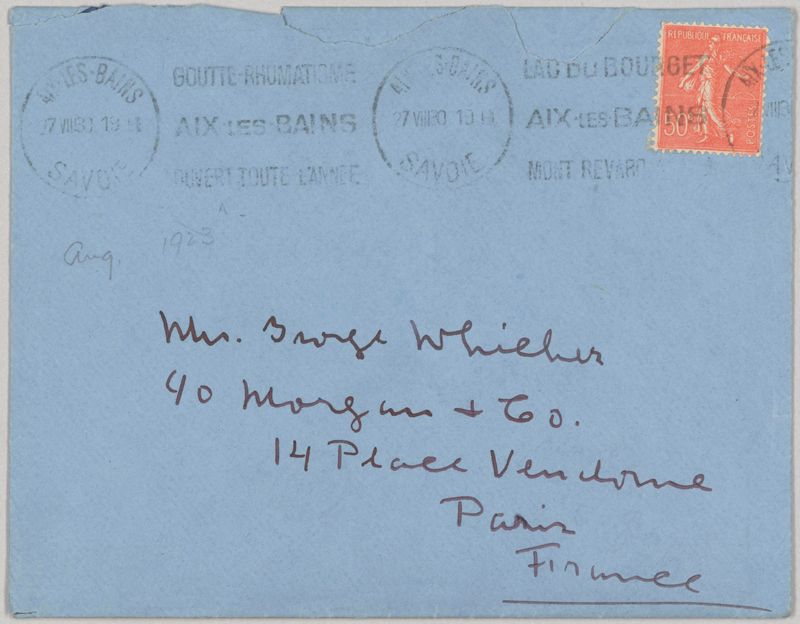 AIX-LES-BAINS
27 VIII 30 19
SAVOIE
GOUTTE-RHUMATISME
AIX-LES-BAINS
OUVERT TOUTE L'ANNÉE
AIX-LES-BAINS
27 VIII 30 19
SAVOIE
LAC DU BOURGET
AIX-LES-BAINS
MONT REVARD
REPUBLIQUE FRANÇAISE
50c
POSTES
Aug. 1923
Mrs. George Whicher
c/o Morgan & Co.
14 Place Vendome
Paris
France